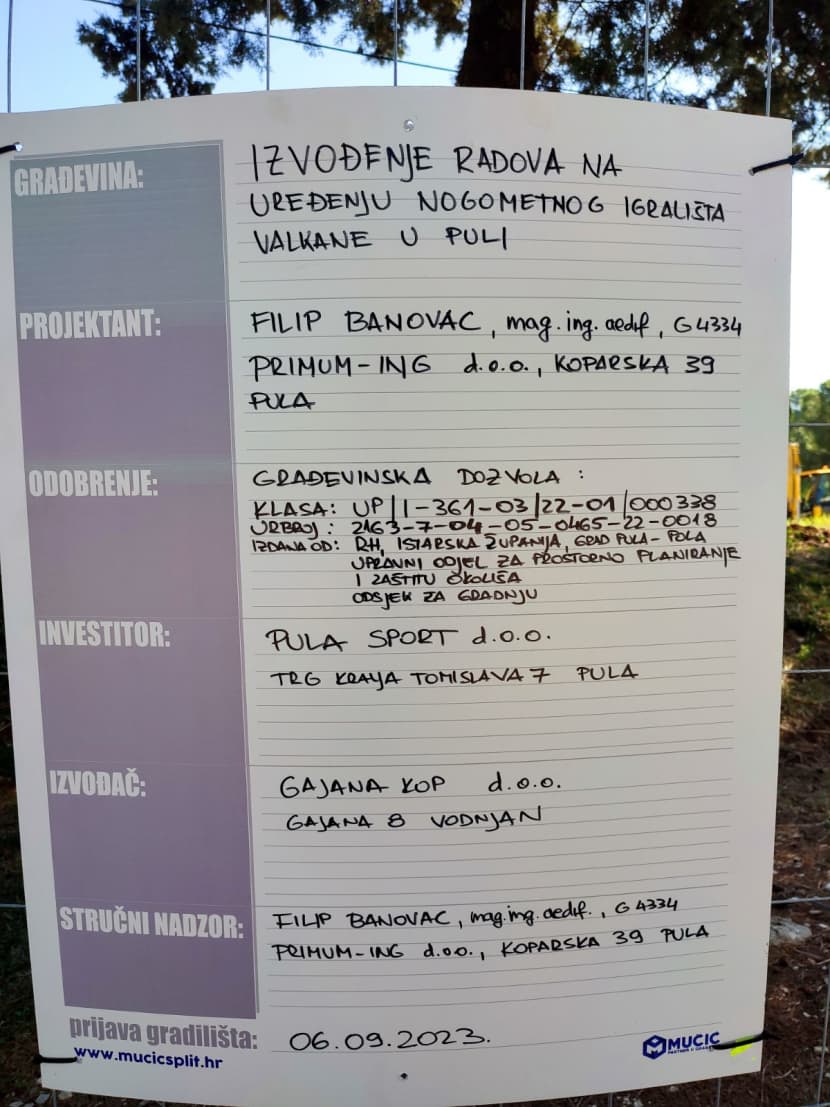 GRAĐEVINA:
IZVOĐENJE RADOVA NA
UREĐENJU NOGOMETNOG IGRALIŠTA
VALKANE U PULI
PROJEKTANT:
FILIP BANOVAC, mag.ing.aedif, G4334
PRIMUM-ING d.o.o., KOPARSKA 39
PULA
ODOBRENJE:
GRAĐEVINSKA DOZVOLA:
KLASA: UP|I-361-03|22-01|000338
URBROJ: 2163-7-04-05-0465-22-0018
IZDANA OD: RH, ISTARSKA ŽUPANIJA, GRAD PULA-POLA
UPRAVNI ODJEL ZA PROSTORNO PLANIRANJE
I ZAŠTITU OKOLIŠA
ODSJEK ZA GRADNJU
INVESTITOR:
PULA SPORT d.o.o.
TRG KRALJA TOMISLAVA 7 PULA
IZVOĐAČ:
GAJANA KOP d.o.o.
GAJANA 8 VODNJAN
STRUČNI NADZOR:
FILIP BANOVAC, mag.ing.aedif., G4334
PRIMUM-ING d.o.o., KOPARSKA 39 PULA
prijava gradilišta: 06.09.2023.
www.mucicsplit.hr
MUCIC